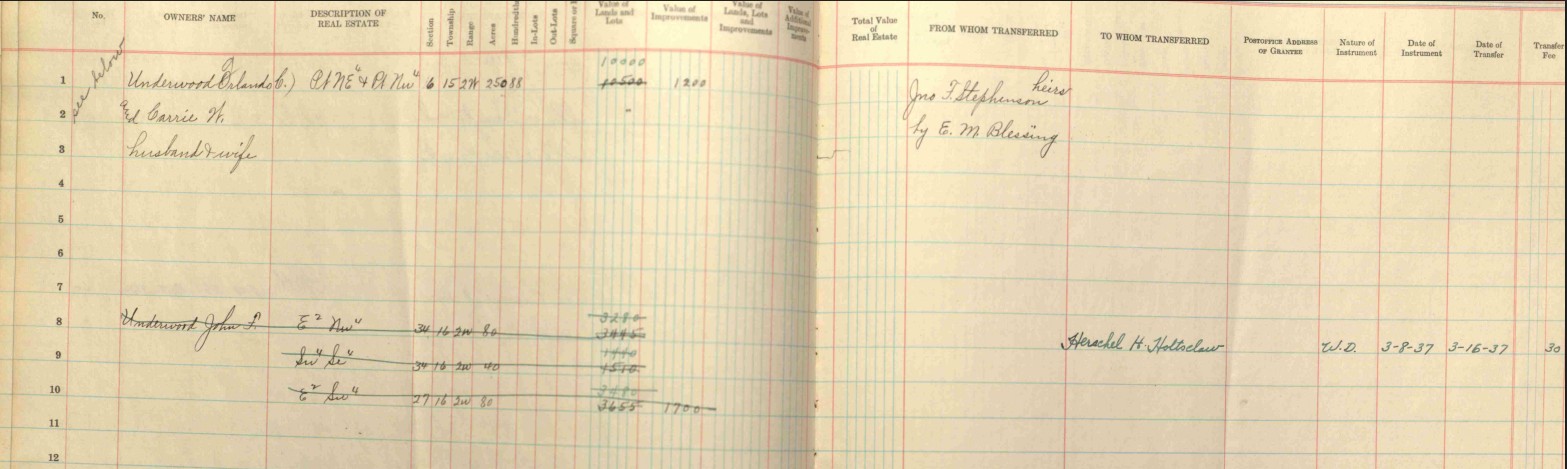 No. OWNERS' NAME DESCRIPTION OF REAL ESTATE Section Township Range Acres Hundredths In-Lots Out-Lots Square or Value of Lands and Lots Value of Improvements Value of Lands, Lots and Improvements Value of Additional Improvements Total Value of Real Estate FROM WHOM TRANSFERRED TO WHOM TRANSFERRED POSTOFFICE ADDRESS OF GRANTEE Nature of Instrument Date of Instrument Date of Transfer Transfer Fee
see below
10000
1 Underwood Orlando C.) Pt NE⁴ & Pt NW⁴ 6 15 2W 250 88 10500 1200 Jno F. Stephenson heirs
2 Carrie W. by E. M. Blessing
3 husband & wife
4
5
6
7
3280
8 Underwood John F. E² NW⁴ 34 16 2W 80 3445 Herschel H. Holtsclaw W.D. 3-8-37 3-16-37 30
1440
9 SW⁴ SE⁴ 34 16 2W 40 1510
3480
10 E² SW⁴ 27 16 2W 80 3655 1700
11
12